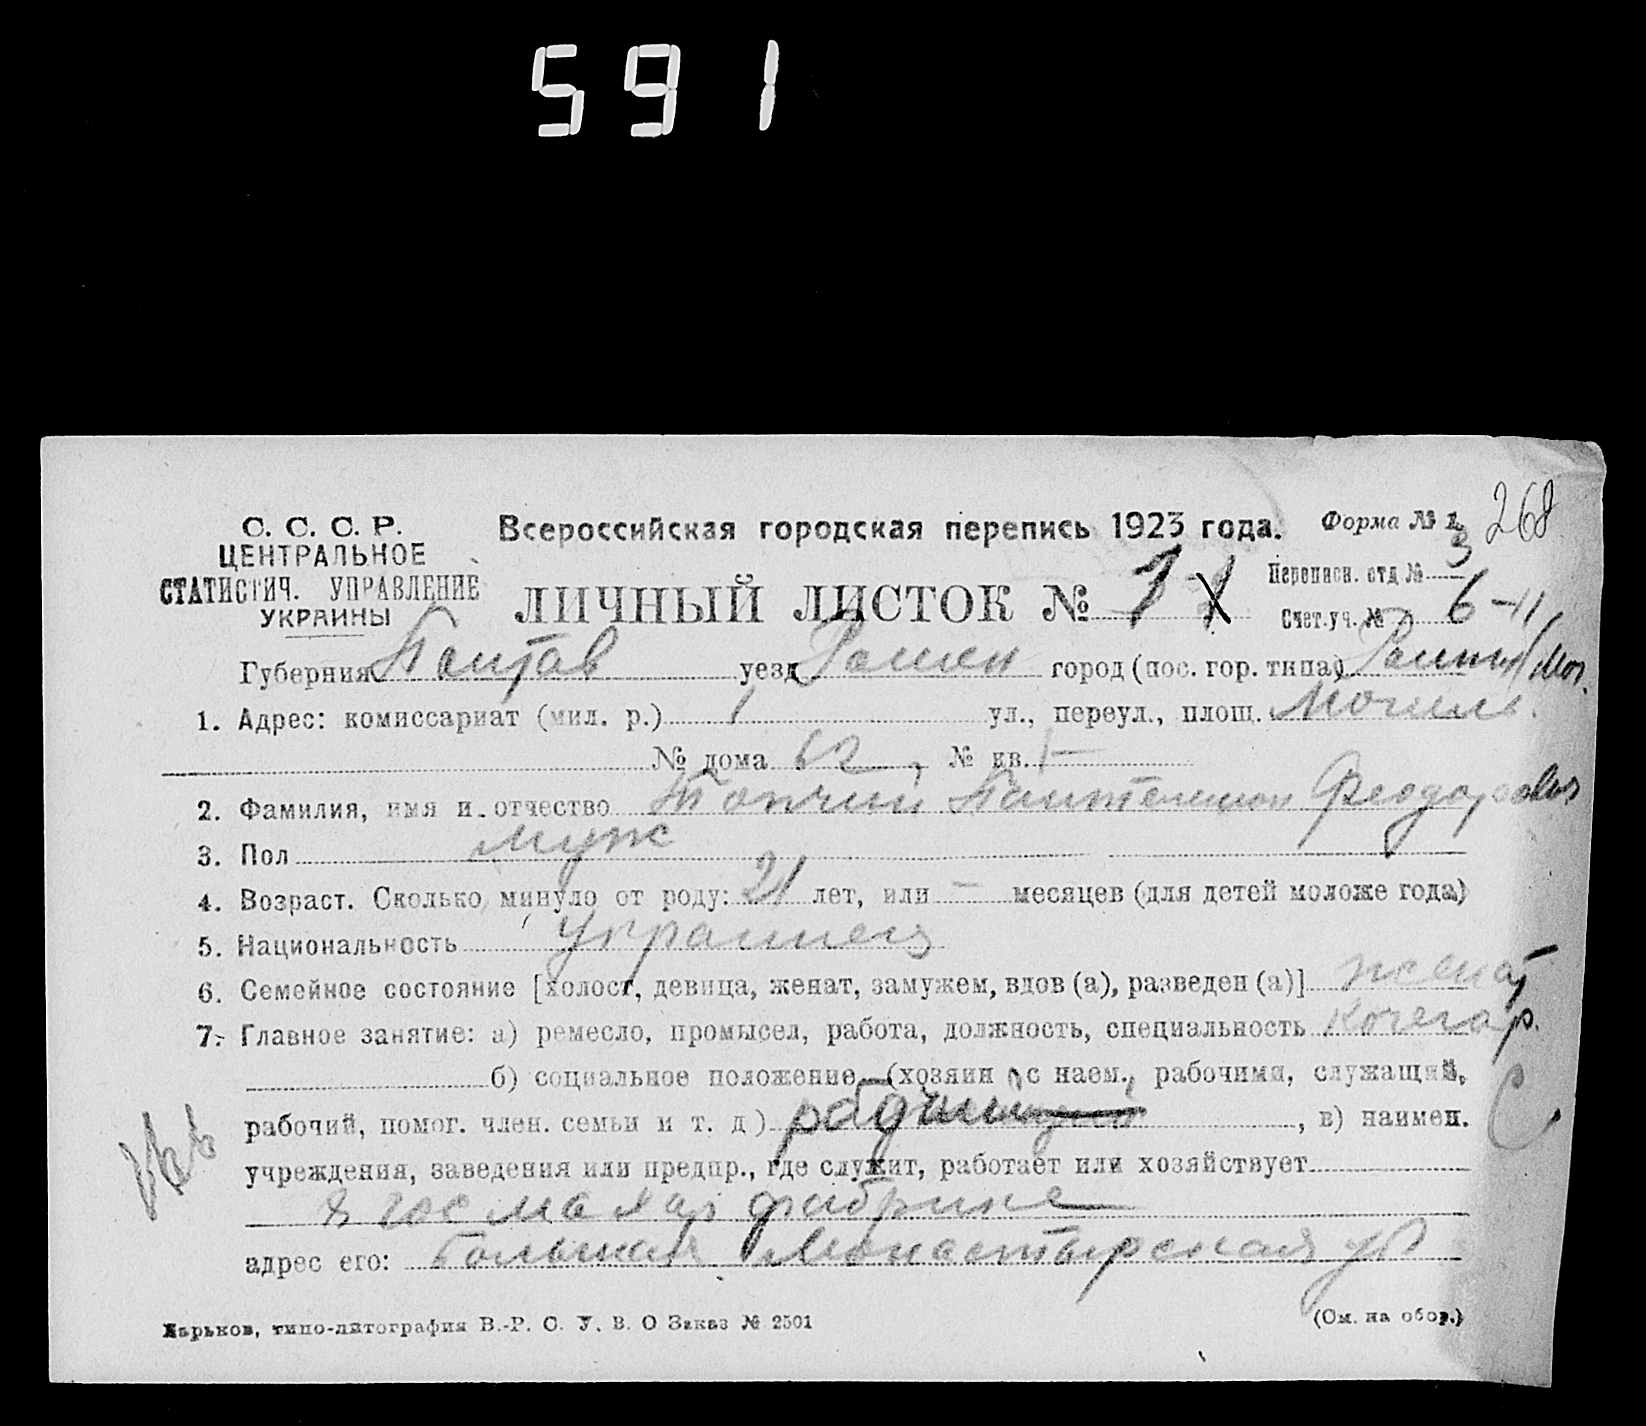 591
268
С. С. С. Р.
ЦЕНТРАЛЬНОЕ
СТАТИСТИЧ. УПРАВЛЕНИЕ
УКРАИНЫ
Всероссийская городская перепись 1923 года.
Форма № 1
ЛИЧНЫЙ ЛИСТОК № 1
Переписн. отд № 3
Счет. уч. № 6-11
Губерния Полтав уезд Ромен город (пос. гор. типа)
1. Адрес: комиссариат (мил. р.) 1 ул., переул., площ. Могил.
№ дома 62, № кв. —
2. Фамилия, имя и отчество Топчий Пантелемон Феодорович
3. Пол муж
4. Возраст. Сколько минуло от роду: 21 лет, или — месяцев (для детей моложе года)
5. Национальность Украинец
6. Семейное состояние [холост, девица, женат, замужем, вдов (а), разведен (а)] женат
7. Главное занятие: а) ремесло, промысел, работа, должность, специальность Кочегар.
б) социальное положение (хозяин с наем. рабочими, служащий,
рабочий, помог. член. семьи и т. д), в) наимен.
учреждения, заведения или предпр., где служит, работает или хозяйствует
фабрике
адрес его: Большая Монастырская ул
Харьков, типо-литография В.-Р. С. У. В. О Заказ № 2501
(См. на обор.)